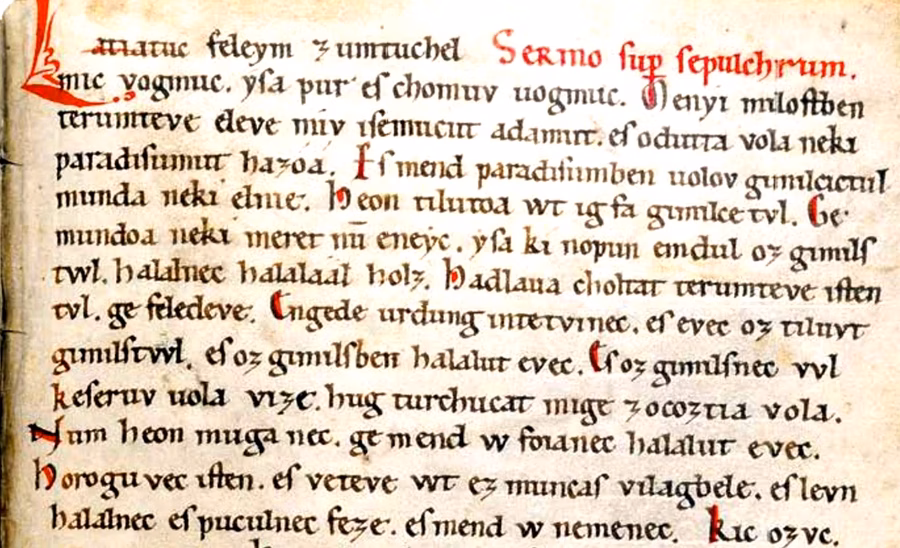 Latiatuc feleym zumtuchel Sermo sup sepulchrum.
mic vogmuc. yſa pur eſ chomuv uogmuc. Menyi miloſtben
terumteve eleve miv iſemucut adamut. eſ odutta vola neki
paradiſumut hazoá. Eſ mend paradiſumben uolov gimilcictul
munda neki elnie. Heon tilutoa wt ig fa gimilce tvl. Ge
mundoa neki meret nū eneyc. yſa ki nopun emdul oz gimilſ
twl. halalnec halalaal holz. Hadlaua choltat terumteve iſten
tvl. ge feledeve. Engede urdung intetvinec. eſ evec oz tiluvt
gimilſtwl. eſ oz gimilſben halalut evec. Eſ oz gimilſnec vvl
keſeruv uola vize. hug turchucat mige zocoztia vola.
Num heon muga nec. ge mend w foianec halalut evec.
Horogu vec iſten. eſ veteve wt ez muncaſ vilagbele. eſ levn
halalnec eſ puculnec feze. eſ mend w nemenec. Kic ozvc.